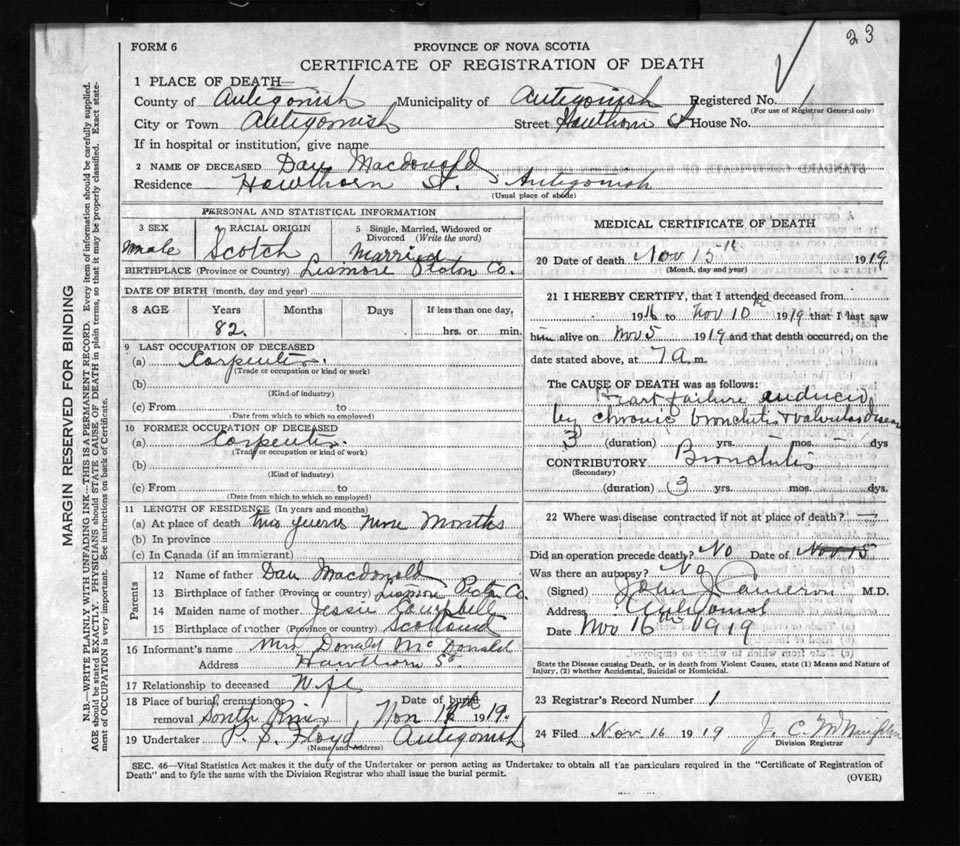 23
FORM 6
PROVINCE OF NOVA SCOTIA
CERTIFICATE OF REGISTRATION OF DEATH
1 PLACE OF DEATH—
County of Antigonish Municipality of Antigonish Registered No. 1
(For use of Registrar General only)
City or Town Antigonish Street Hawthorn St House No.
If in hospital or institution, give name
2 NAME OF DECEASED Dan Macdonald
Residence Hawthorn St. Antigonish
(Usual place of abode)
PERSONAL AND STATISTICAL INFORMATION
3 SEX
male
RACIAL ORIGIN
Scotch
5 Single, Married, Widowed or Divorced (Write the word)
Married
BIRTHPLACE (Province or Country) Lismore Pictou Co.
DATE OF BIRTH (month, day and year)
8 AGE Years Months Days If less than one day,
82. hrs. or min.
9 LAST OCCUPATION OF DECEASED
(a) Carpenter.
(Trade or occupation or kind or work)
(b)
(Kind of industry)
(c) From to
(Date from which to which so employed)
10 FORMER OCCUPATION OF DECEASED
(a) Carpenter.
(Trade or occupation or kind of work)
(b)
(Kind of industry)
(c) From to
(Date from which to which so employed)
11 LENGTH OF RESIDENCE (In years and months)
(a) At place of death two years nine Months
(b) In province
(c) In Canada (if an immigrant)
Parents
12 Name of father Dan Macdonald
13 Birthplace of father (Province or country) Lismore Pictou Co.
14 Maiden name of mother Jessie Campbell
15 Birthplace of mother (Province or country) Scotland
16 Informant's name Mrs Donald McDonald
Address Hawthorn St
17 Relationship to deceased Wife
18 Place of burial, cremation or removal South River Date of burial Nov 1919.
19 Undertaker P. S. Floyd Antigonish
(Name and Address)
MEDICAL CERTIFICATE OF DEATH
20 Date of death Nov 15th 1919
(Month, day and year)
21 I HEREBY CERTIFY, that I attended deceased from
1916 to Nov 10th 1919 that I last saw
him alive on Nov 5 1919 and that death occurred, on the
date stated above, at 7 a. m.
The CAUSE OF DEATH was as follows:
Heart failure induced
by chronic bronchitis & valvular disease
3 (duration) yrs. mos. dys
CONTRIBUTORY Bronchitis
(Secondary)
(duration) 3 yrs. mos. dys.
22 Where was disease contracted if not at place of death? —
Did an operation precede death? No Date of Nov 15
Was there an autopsy? No
(Signed) John J Cameron M.D.
Address Antigonish
Date Nov 16th 1919
State the Disease causing Death, or in death from Violent Causes, state (1) Means and Nature of
Injury, (2) whether Accidental, Suicidal or Homicidal.
23 Registrar's Record Number 1
24 Filed Nov 16 1919 J. C. McNaughton
Division Registrar
SEC. 46—Vital Statistics Act makes it the duty of the Undertaker or person acting as Undertaker to obtain all the particulars required in the "Certificate of Registration of
Death" and to fyle the same with the Division Registrar who shall issue the burial permit.
(OVER)
MARGIN RESERVED FOR BINDING
N.B.—WRITE PLAINLY WITH UNFADING INK—THIS IS A PERMANENT RECORD. Every item of information should be carefully supplied.
AGE should be stated EXACTLY. PHYSICIANS should STATE CAUSE OF DEATH in plain terms, so that it may be properly classified. Exact state-
ment of OCCUPATION is very important. See instructions on back of Certificate.